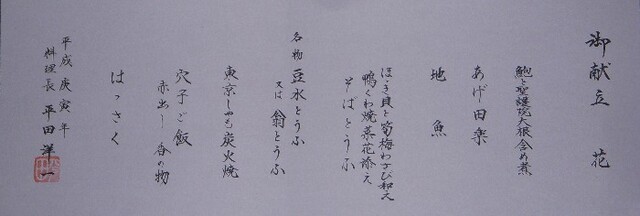 御献立 花
鮑と聖護院大根含め煮
あげ田楽
地魚
ほっき貝と筍梅わさび和え
鴨くわ焼菜花添え
そばとうふ
名物 豆水とうふ
又は 翁とうふ
東京しゃも炭火焼
穴子ご飯
赤出し 香の物
はっさく
平成庚寅年
料理長 平田洋一